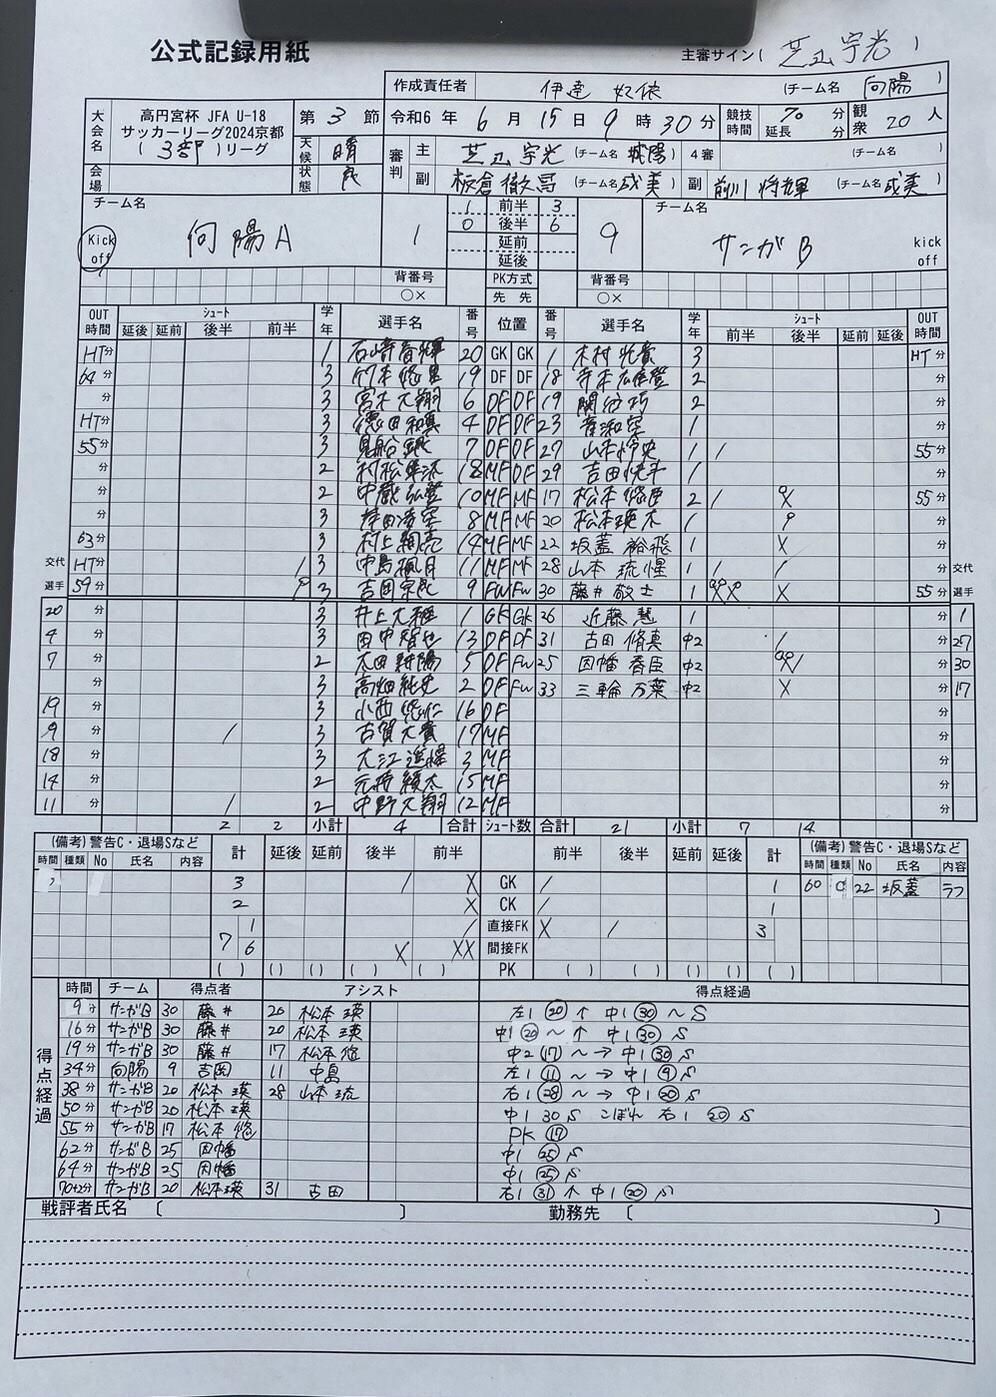 公式記録用紙
主審サイン( 芝辻 宇光 )
作成責任者 伊達 (チーム名 向陽 )
大会名 高円宮杯 JFA U-18 サッカーリーグ2024京都 ( 3部 )リーグ
第 3 節 令和6 年 6 月 15 日 9 時 30 分
競技時間 70 分 延長 分 観衆 20 人
会場
天候 晴 状態 良
審判 主 芝辻 宇光 (チーム名 城陽 ) 4審 (チーム名 )
副 板倉 徹 (チーム名 成美 ) 副 前川 将輝 (チーム名 成美 )
チーム名 1 前半 3 チーム名
0 後半 6
Kick off 向陽A 1 延前 9 サンガB kick off
延後
背番号 PK方式 背番号
○× 先 先 ○×
OUT時間 シュート 延後 延前 後半 前半 学年 選手名 番号 位置 番号 選手名 学年 シュート 前半 後半 延前 延後 OUT時間
HT分 1 20 GK GK 1 木村 3 HT分
64分 3 竹本 悠里 19 DF DF 18 寺本 2 分
分 3 宮木 大翔 6 DF DF 19 関 巧 2 分
HT分 3 徳田 和真 4 DF DF 23 1 分
55分 3 7 DF DF 27 山本 1 / 55分
分 2 村松 18 MF DF 29 吉田 快斗 1 分
分 2 中蔵 弘登 10 MF MF 17 松本 悠臣 2 / 55分
分 3 岸田 凌空 8 MF MF 20 松本 瑛太 1 分
63分 3 村上 絢亮 14 MF MF 22 坂蓋 裕飛 1 X 分
交代 HT分 / 3 中島 颯月 11 MF MF 28 山本 琉惺 1 / / 分 交代
選手 59分 3 吉岡 宗民 9 FW FW 30 藤井 敬士 1 55分 選手
20 分 3 井上 大 1 GK GK 26 近藤 慧 1 分 1
4 分 3 田中 13 DF DF 31 古田 脩真 中2 / 分 27
7 分 2 太田 耕陽 5 DF FW 25 因幡 春臣 中2 分 30
分 3 高畑 純史 2 DF FW 33 三輪 万葉 中2 X 分 17
19 分 3 小西 16 DF 分
9 分 / 3 古賀 大貴 17 MF 分
18 分 3 大江 遥惺 3 MF 分
14 分 2 元 頼太 15 MF 分
11 分 / 2 中野 大翔 12 MF 分
2 2 小計 4 合計 シュート数 合計 21 小計 7 14
(備考)警告C・退場Sなど 計 延後 延前 後半 前半 前半 後半 延前 延後 計 (備考)警告C・退場Sなど
時間 種類 No 氏名 内容 時間 種類 No 氏名 内容
3 / X GK / 1 60 C 22 坂蓋 ラフ
2 X CK / 1
7 1 / 直接FK X / 3
6 X XX 間接FK
( ) ( ) ( ) ( ) ( ) PK ( ) ( ) ( ) ( ) ( )
得点経過 時間 チーム 得点者 アシスト 得点経過
9分 サンガB 30 藤井 20 松本 瑛 左1 ⑳ ↑ 中1 ㉚ ～ S
16分 サンガB 30 藤井 20 松本 瑛 中1 ⑳ ～ ↑ 中1 ㉚ S
19分 サンガB 30 藤井 17 松本 悠 中2 ⑰ ～ → 中1 ㉚ S
34分 向陽 9 吉岡 11 中島 左1 ⑪ ～ → 中1 ⑨ S
38分 サンガB 20 松本 瑛 28 山本 琉 右1 ㉘ ～ → 中1 ⑳ S
50分 サンガB 20 松本 瑛 中1 30 S こぼれ 右1 ⑳ S
55分 サンガB 17 松本 悠 PK ⑰
62分 サンガB 25 因幡 中1 ㉕ S
64分 サンガB 25 因幡 中1 ㉕ S
70+2分 サンガB 20 松本 瑛 31 古田 右1 ㉛ ↑ 中1 ⑳ S
戦評者氏名 〔 〕 勤務先 〔 〕